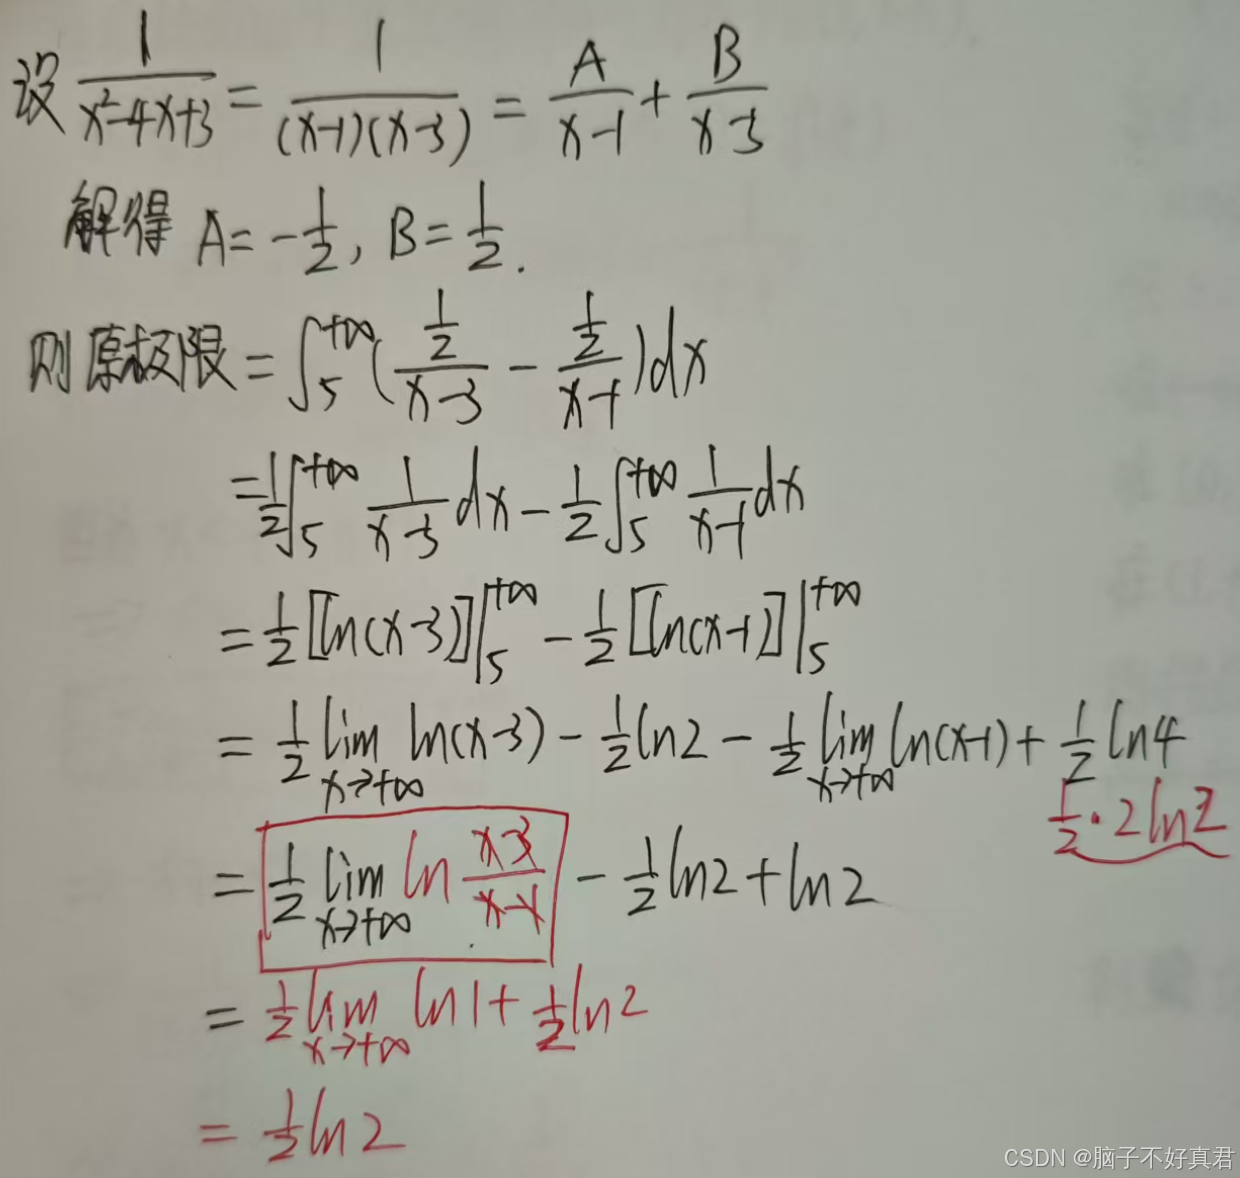 设 1/(x²-4x+3) = 1/((x-1)(x-3)) = A/(x-1) + B/(x-3)
解得 A = -1/2, B = 1/2.
则原极限 = ∫₅^{+∞} ((1/2)/(x-3) - (1/2)/(x-1)) dx
= 1/2 ∫₅^{+∞} 1/(x-3) dx - 1/2 ∫₅^{+∞} 1/(x-1) dx
= 1/2 [ln(x-3)] |₅^{+∞} - 1/2 [ln(x-1)] |₅^{+∞}
= 1/2 lim_{x→+∞} ln(x-3) - 1/2 ln2 - 1/2 lim_{x→+∞} ln(x-1) + 1/2 ln4
1/2 · 2ln2
= 1/2 lim_{x→+∞} ln (x-3)/(x-1) - 1/2 ln2 + ln2
= 1/2 lim_{x→+∞} ln1 + 1/2 ln2
= 1/2 ln2
CSDN @脑子不好真君